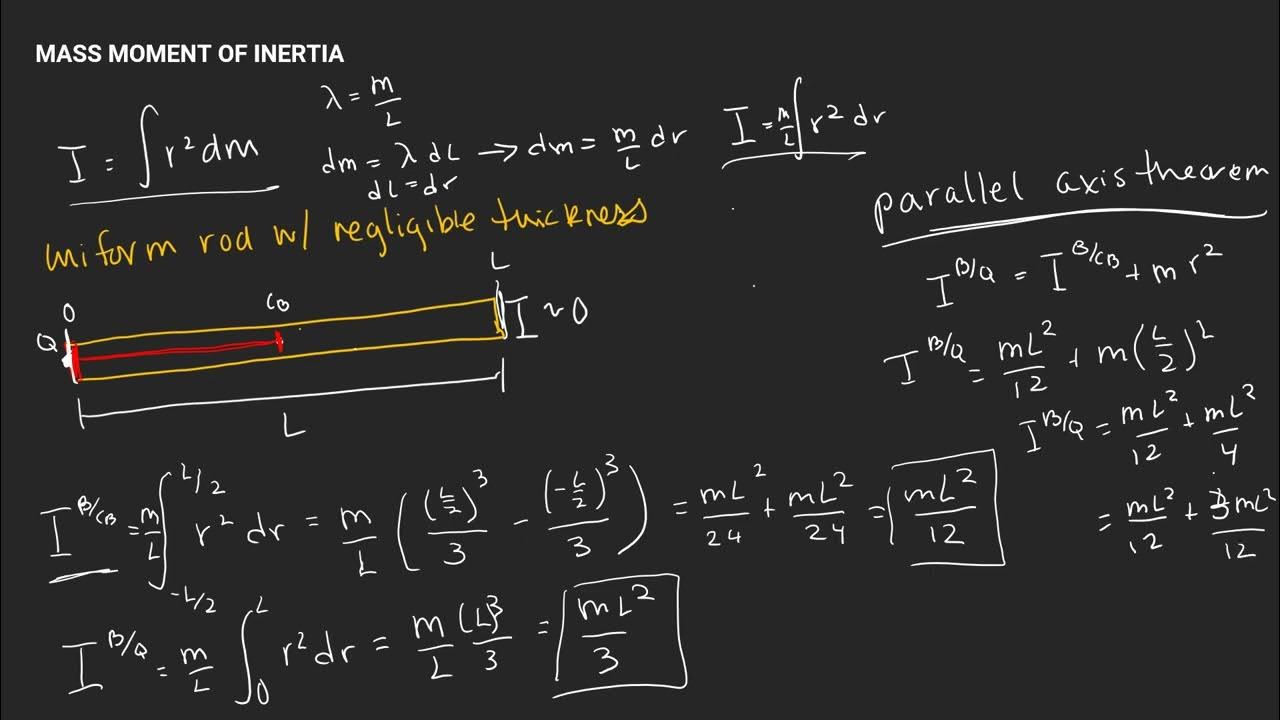 MASS MOMENT OF INERTIA
I = ∫ r² dm
λ = m/L
dm = λ dL → dm = m/L dr
dL = dr
I = m/L ∫ r² dr
uniform rod w/ negligible thickness
parallel axis theorem
I^{B/Q} = I^{B/CB} + m r²
I^{B/Q} = mL²/12 + m(L/2)²
I^{B/Q} = mL²/12 + mL²/4
= mL²/12 + 3mL²/12
O CB L
Q I ~ 0
L
I^{B/CB} = m/L ∫_{-L/2}^{L/2} r² dr = m/L ((L/2)³/3 - (-L/2)³/3) = mL²/24 + mL²/24 = mL²/12
I^{B/Q} = m/L ∫_0^L r² dr = m/L (L)³/3 = mL²/3